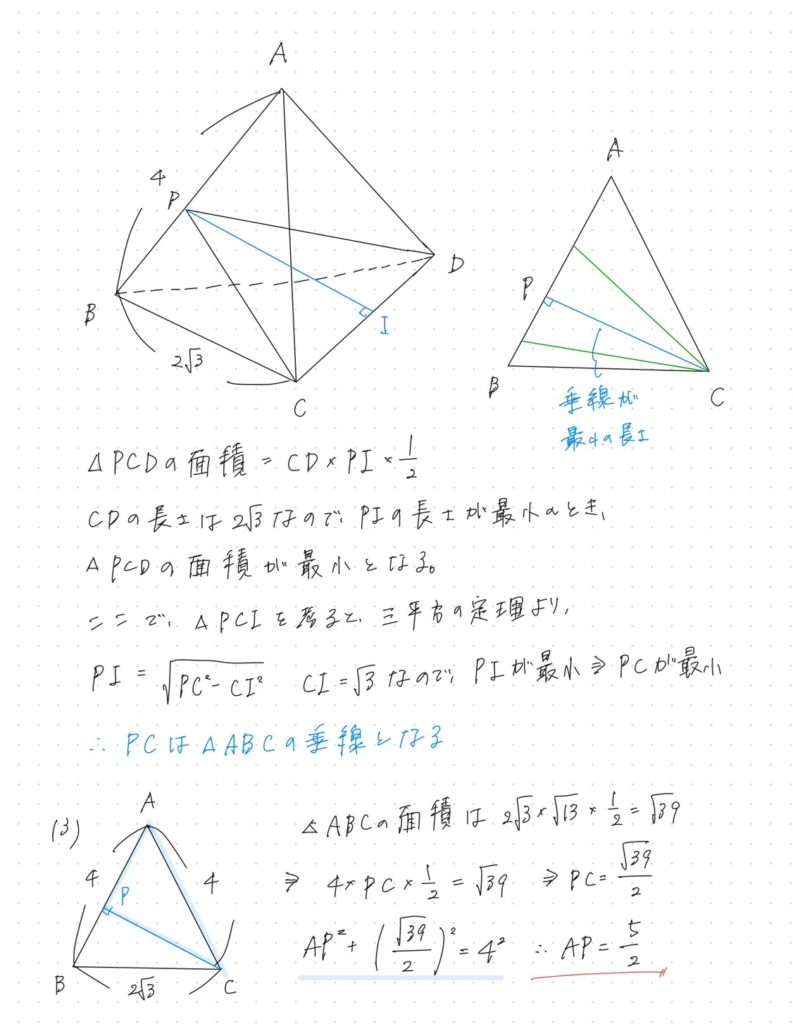 A
4
P
B
D
I
2√3
C
A
P
B
C
垂線が
最小の長さ
△PCDの面積 = CD × PI × 1/2
CDの長さは 2√3 なので、PIの長さが最小のとき、
△PCDの面積が最小となる。
ここで、△PCIを考ると、三平方の定理より、
PI = √(PC² - CI²) CI = √3 なので、PIが最小 ⇒ PCが最小
∴ PCは△ABCの垂線となる
(3)
A
4
4
P
B
2√3
C
△ABCの面積は 2√3 × √13 × 1/2 = √39
⇒ 4 × PC × 1/2 = √39 ⇒ PC = √39/2
AP² + (√39/2)² = 4² ∴ AP = 5/2